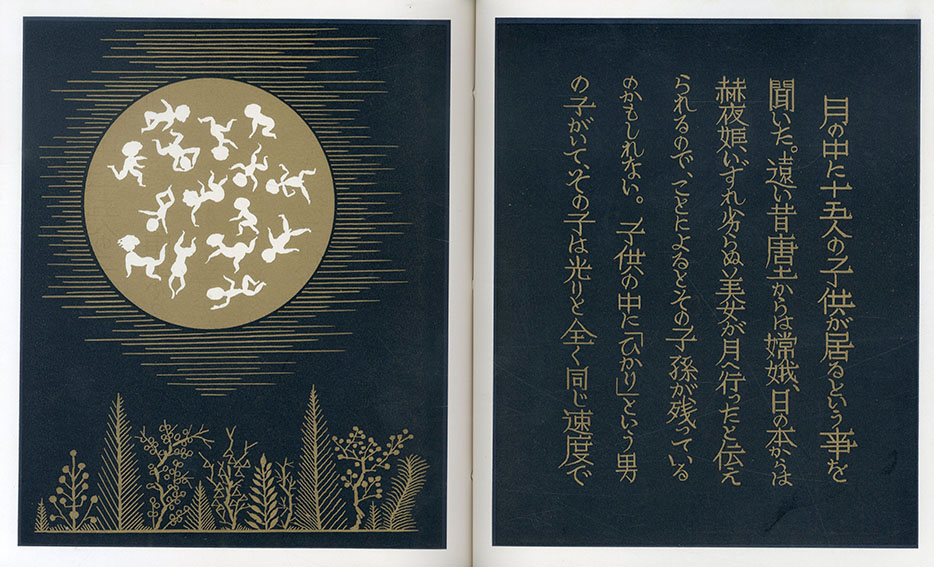 月の中に十五人の子供が居るという事を
聞いた。遠い昔唐土からは嫦娥、日の本からは
赫夜姫いずれ劣らぬ美女が月へ行ったと伝え
られるので、ことによるとその子孫が残っている
のかもしれない。子供の中に「ひかり」という男
の子がいて、その子は光りと全く同じ速度で